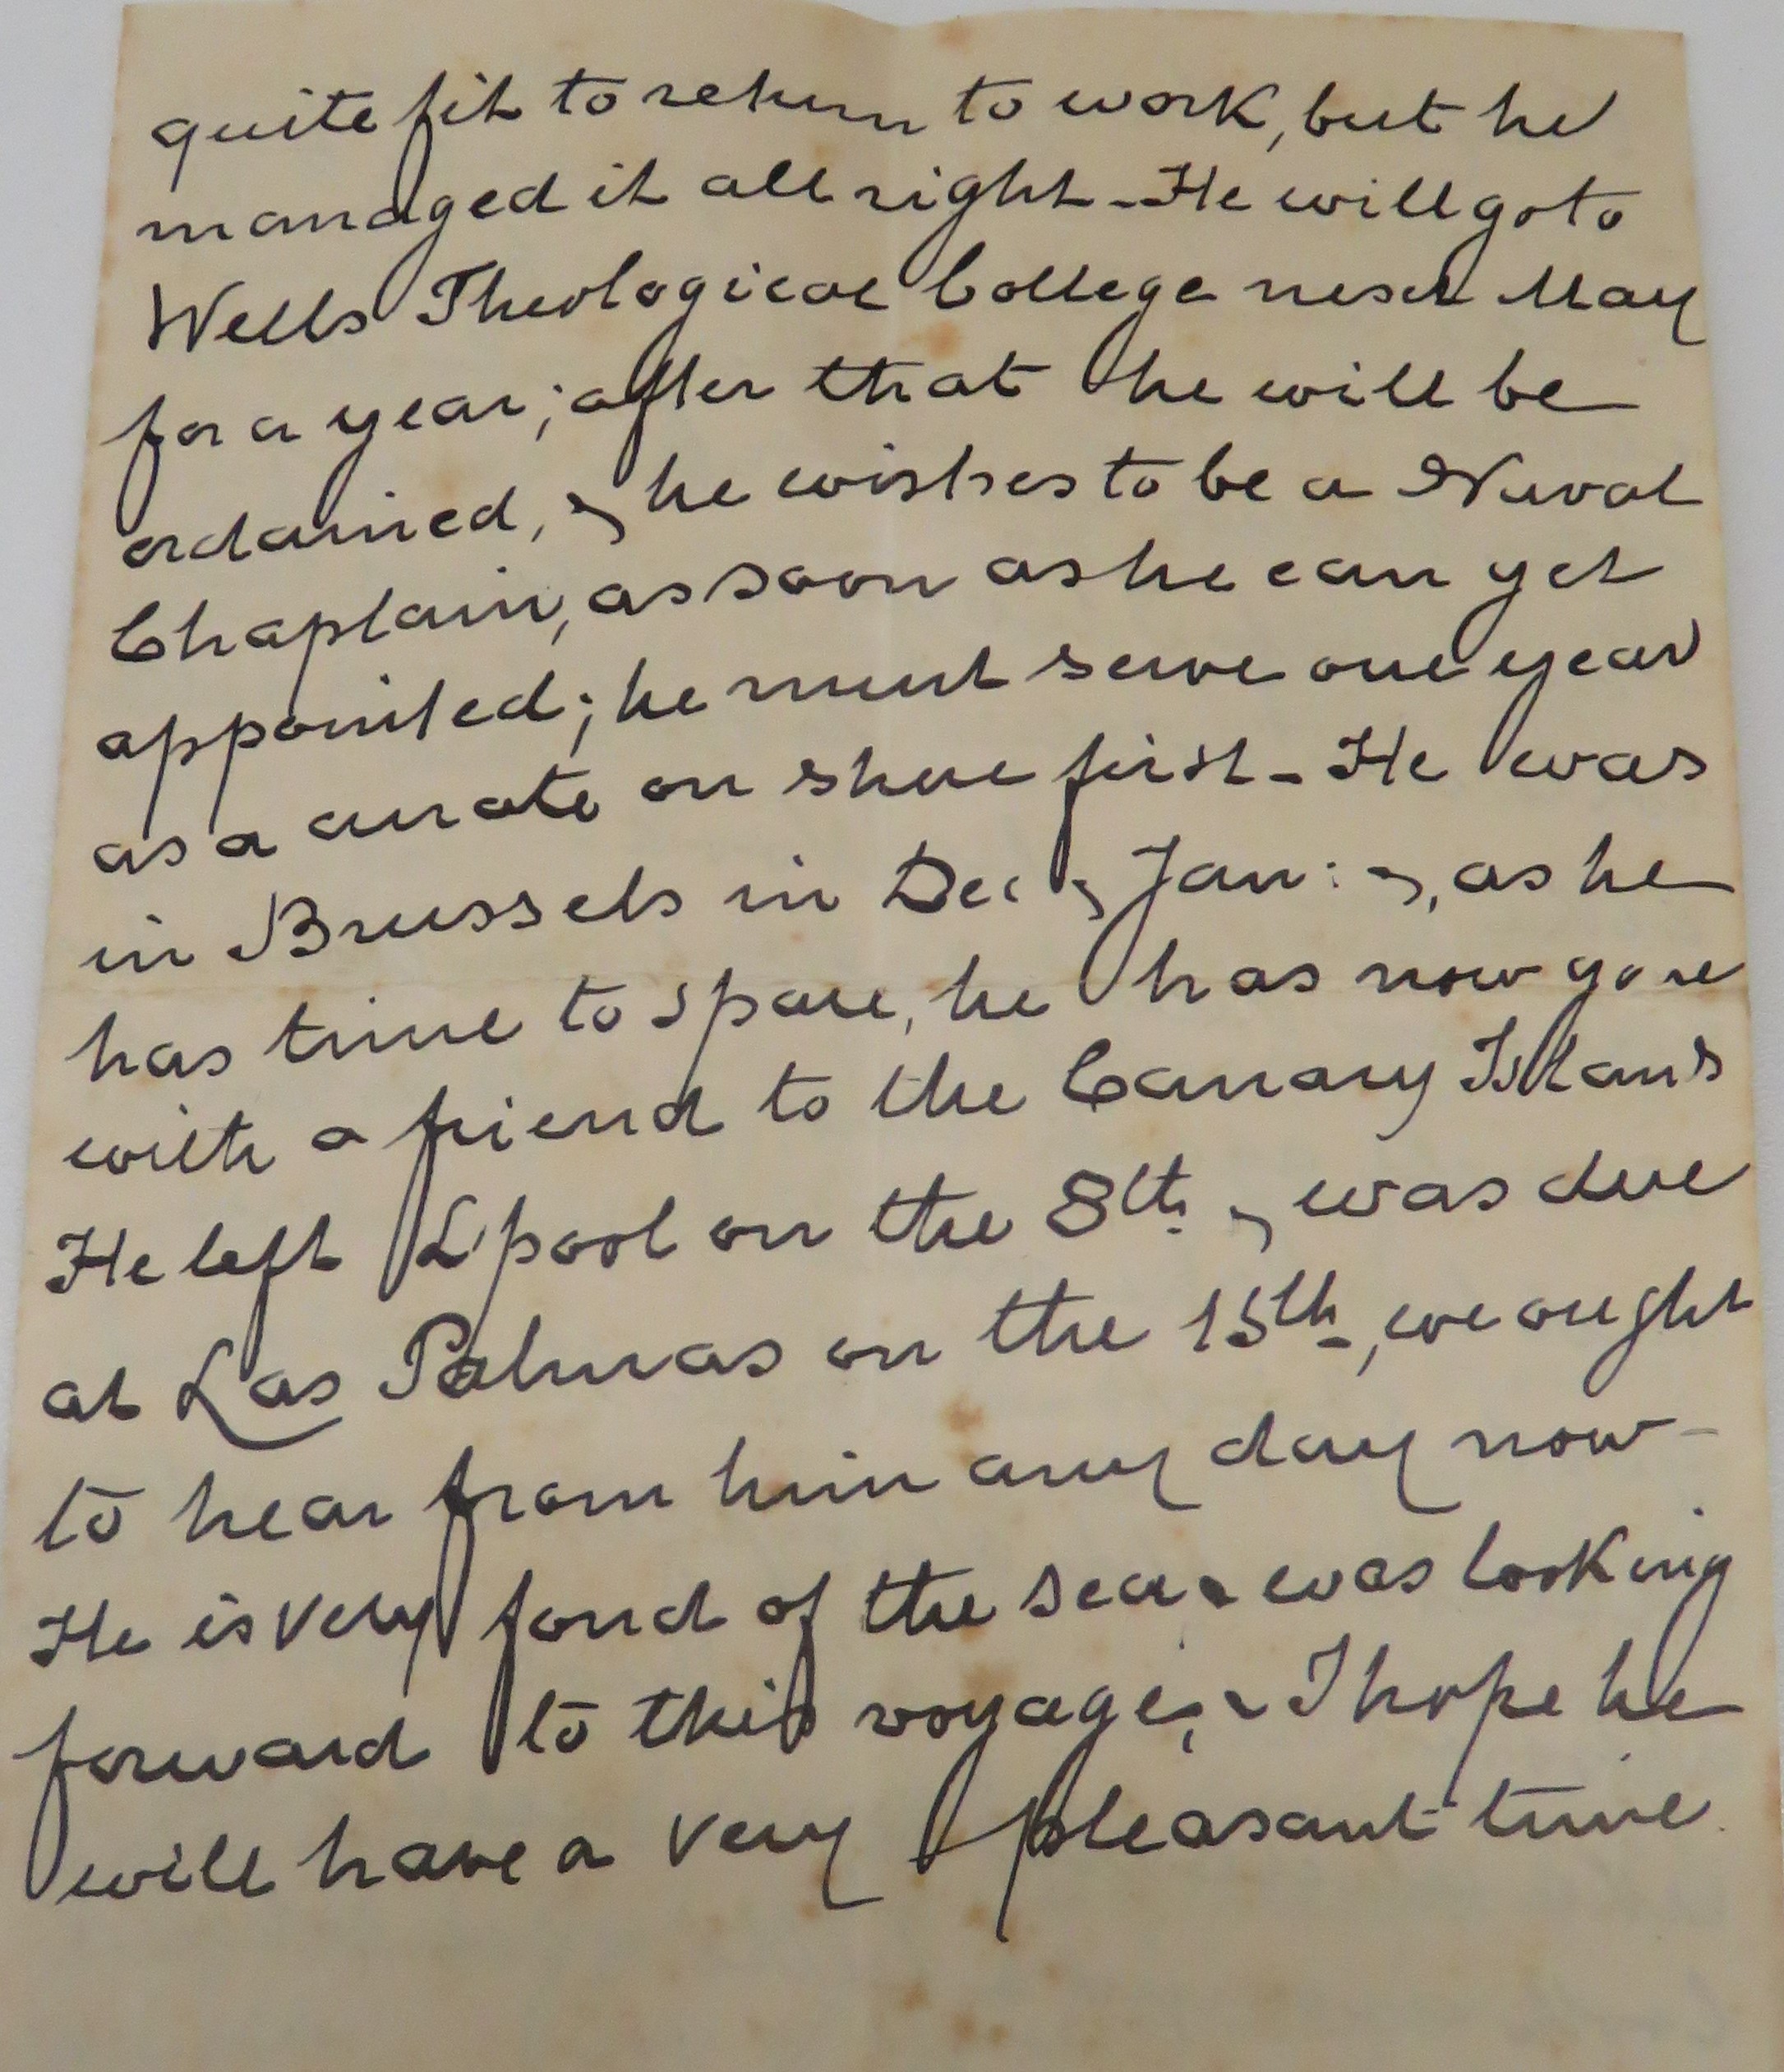 quite fit to return to work, but he
managed it all right - He will go to
Wells Theological College next May
for a year; after that he will be
ordained, & he wishes to be a Naval
Chaplain, as soon as he can get
appointed; he must serve one year
as a curate on shore first - He was
in Brussels in Dec & Jan: &, as he
has time to spare, he has now gone
with a friend to the Canary Islans
He left L'pool on the 8th & was due
at Las Palmas on the 15th, we ought
to hear from him any day now -
He is very fond of the sea & was looking
forward to this voyage; & I hope he
will have a very pleasant time